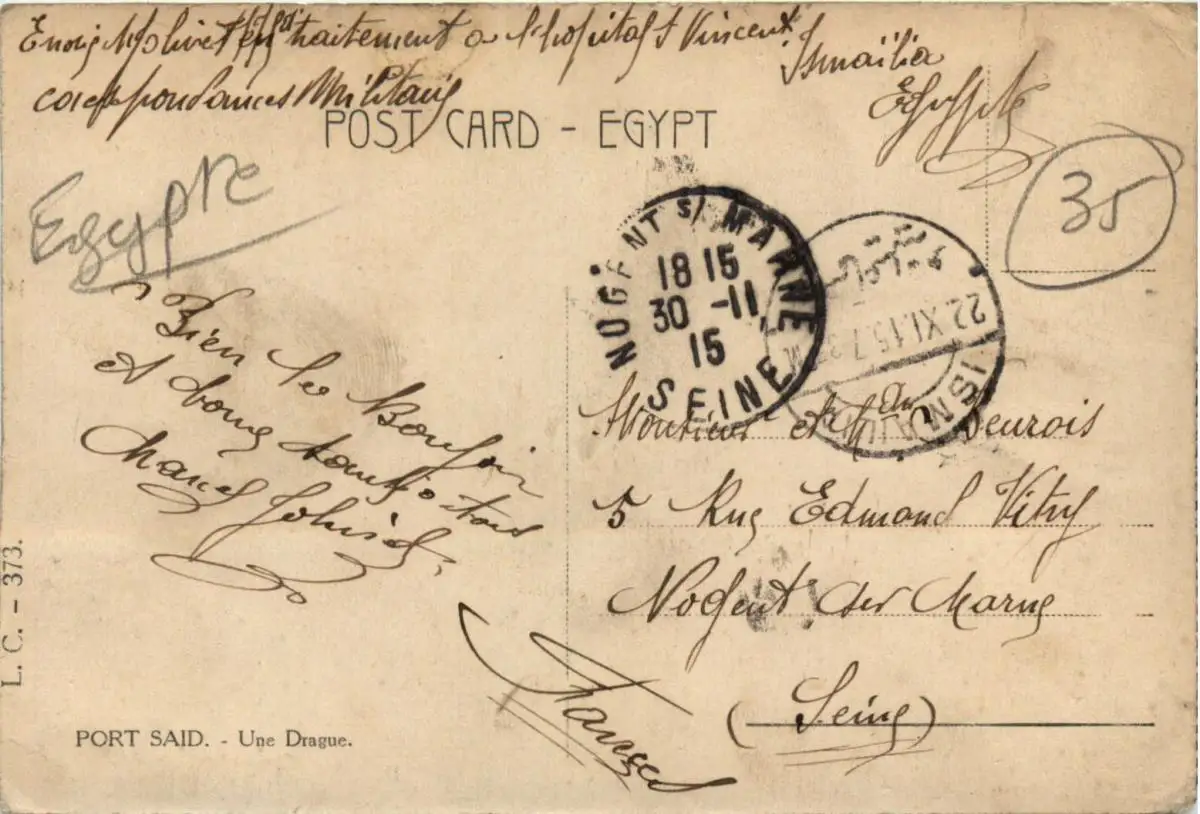 en traitement a l'hopital St Vincent
Ismaïlia
Correspondances Militaire
Egypte
POST CARD - EGYPT
Egypte
35
NOGENT S/ MARNE
18 15
30 -11
15
SEINE
22.XI.15.7
Bien le Bonjour
et à vous tous
Marcel
Monsieur et
5 Rue Edmond Vitry
Nogent sur Marne
(Seine)
France
L. C. - 373.
PORT SAID. - Une Drague.